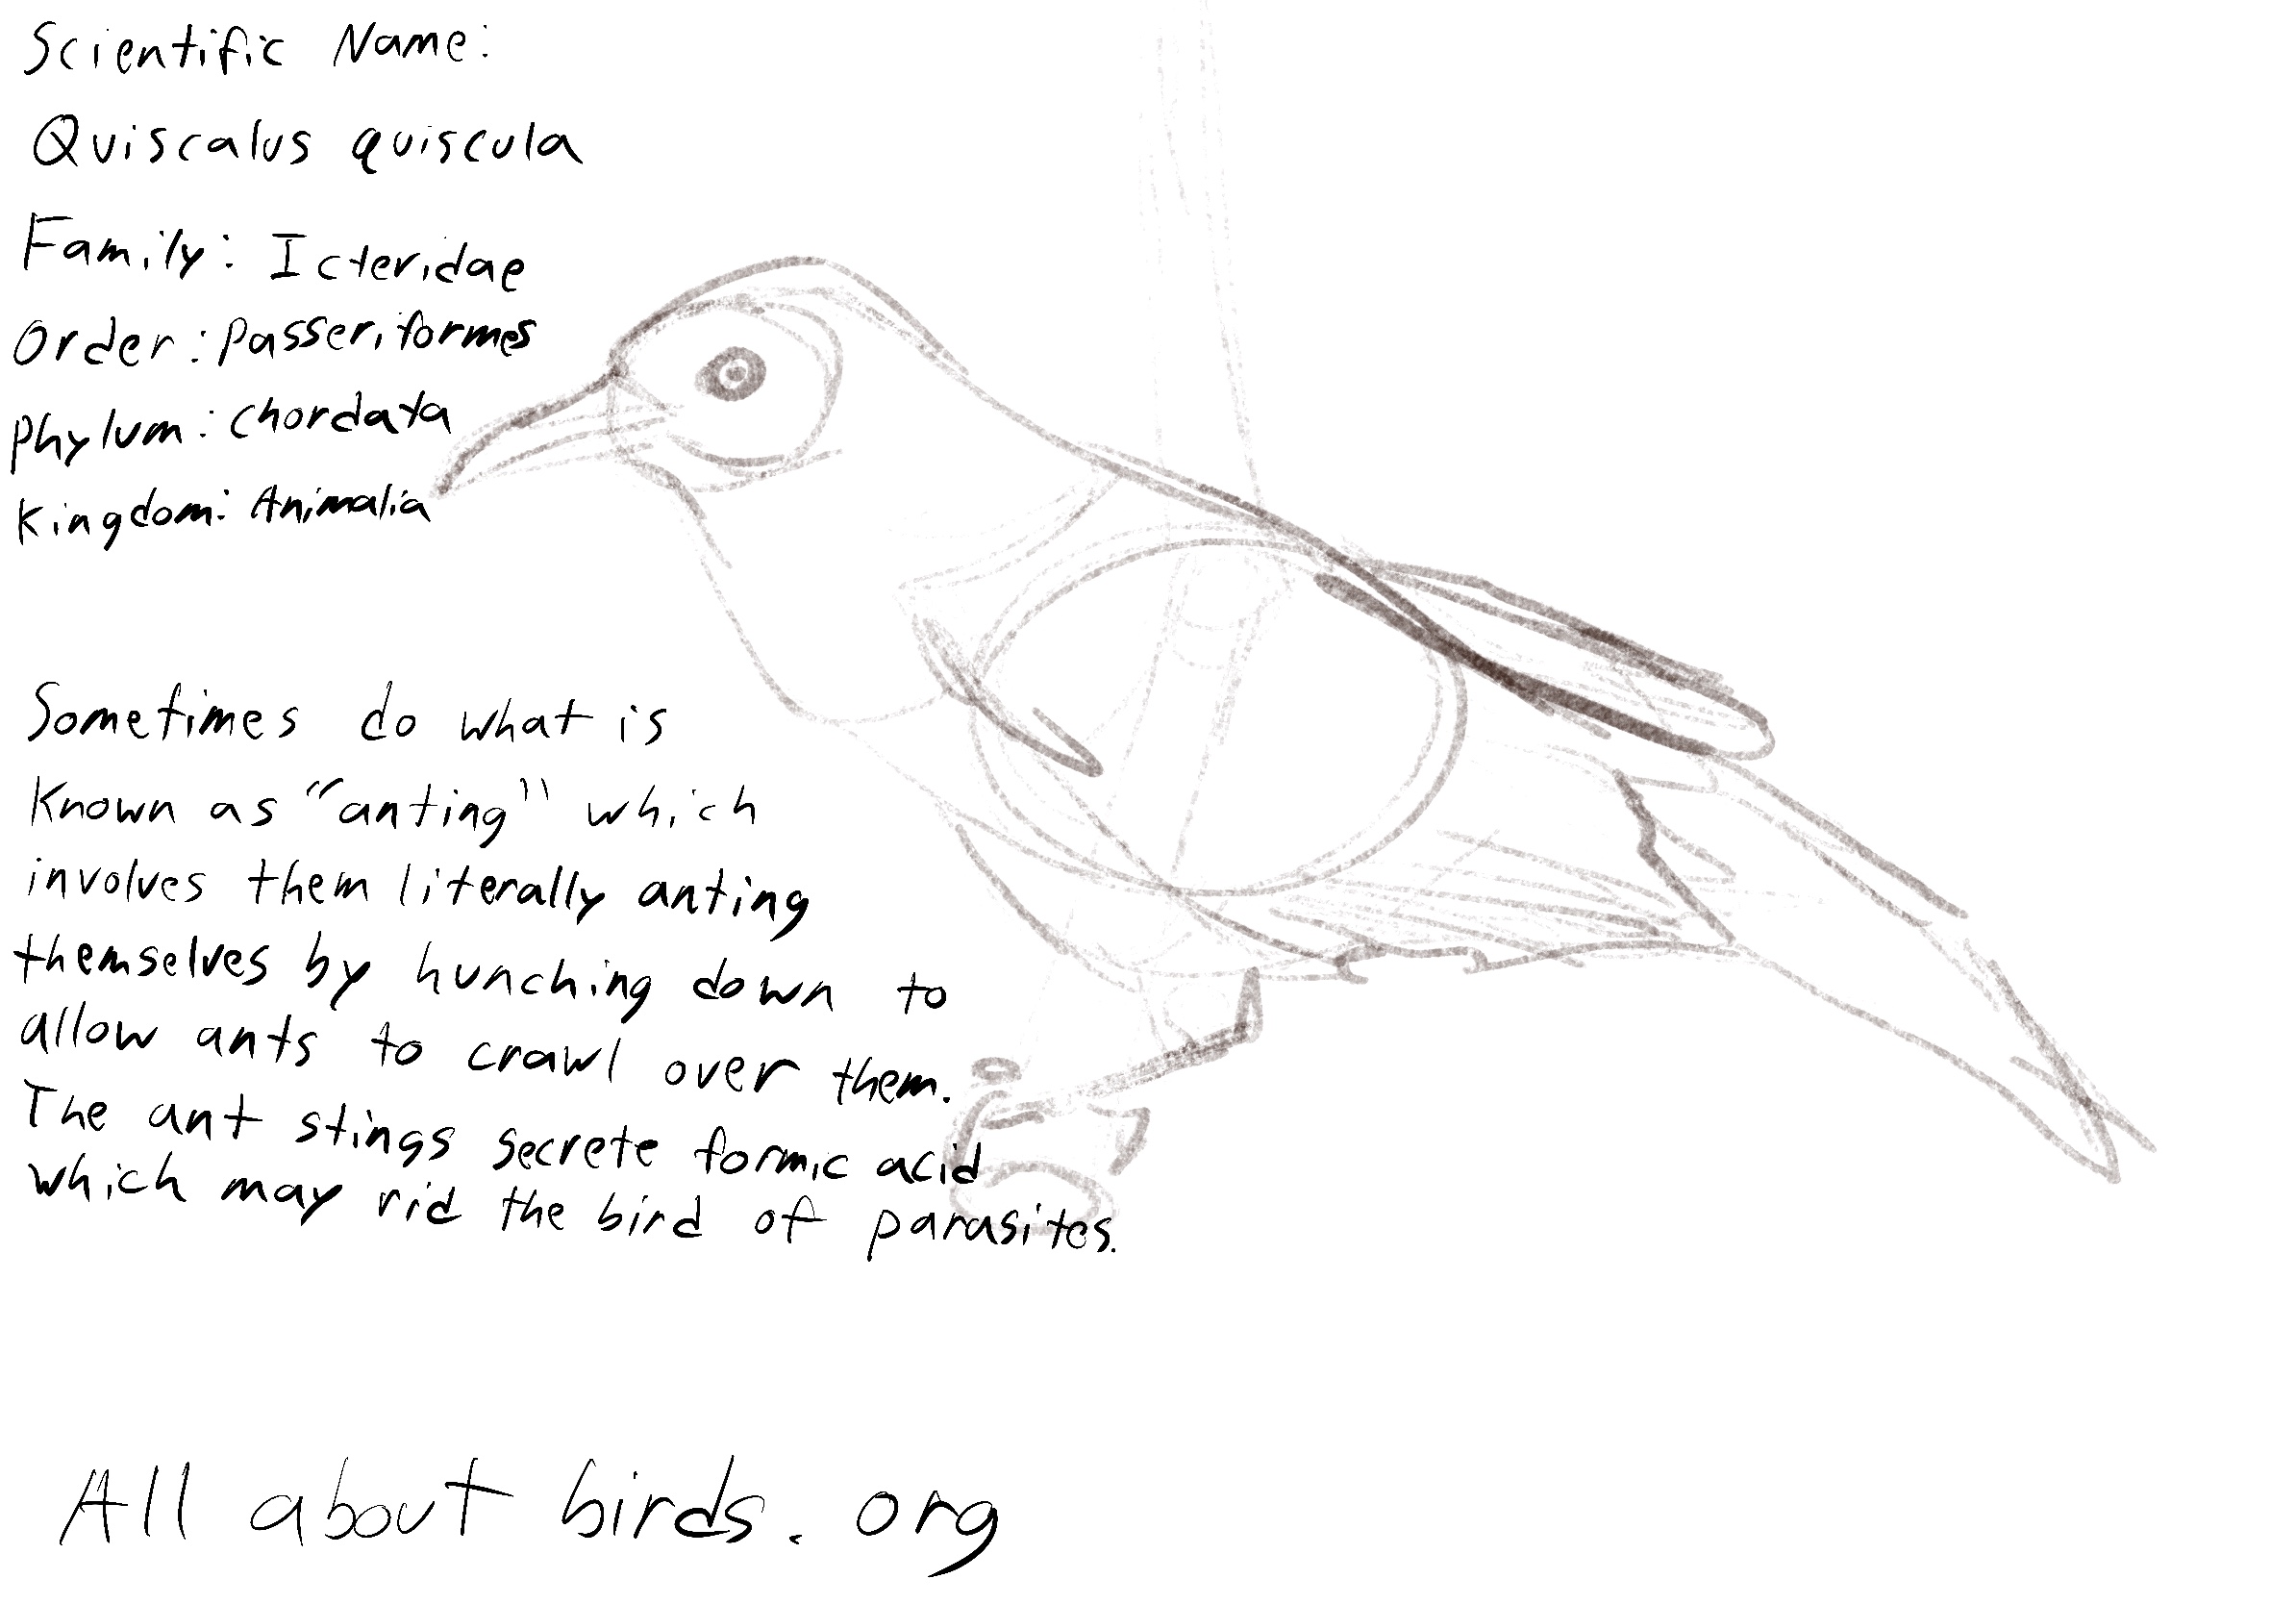 Scientific Name:
Quiscalus quiscula
Family: Icteridae
Order: Passeriformes
Phylum: Chordata
Kingdom: Animalia
Sometimes do what is
Known as "anting" which
involves them literally anting
themselves by hunching down to
allow ants to crawl over them.
The ant stings secrete formic acid
which may rid the bird of parasites.
All about birds. org